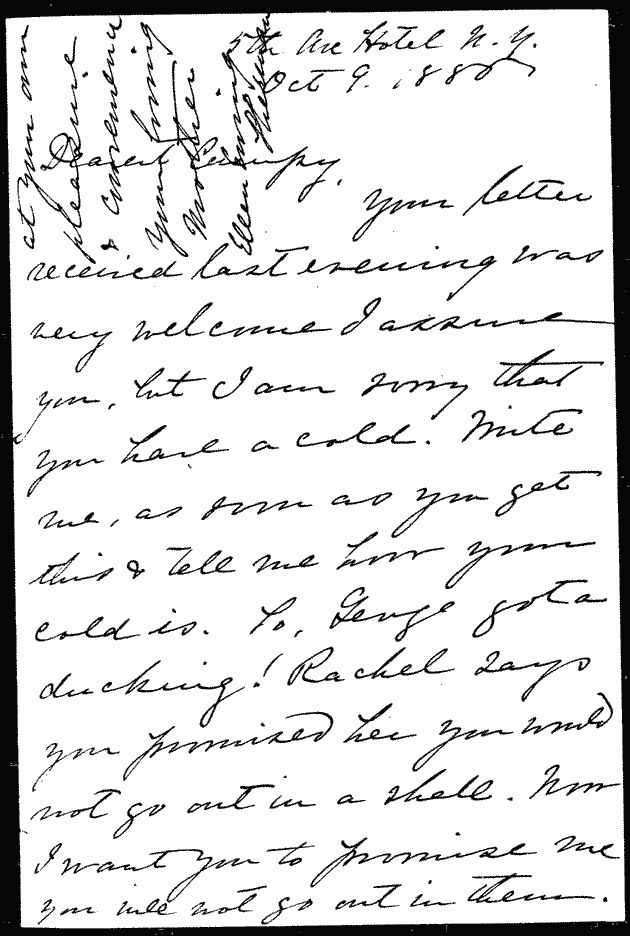 5th Ave Hotel N. Y.
Oct 9. 1885
Dearest Cumpy,
your letter
received last evening was
very welcome I assure
you, but I am sorry that
you have a cold. Write
me, as soon as you get
this & tell me how your
cold is. So, George got a
ducking! Rachel says
you promised her you would
not go out in a shell. Now
I want you to promise me
you will not go out in them.
at your own
pleasure
& convenience
your loving
Mother
Ellen Ewing
Sherman